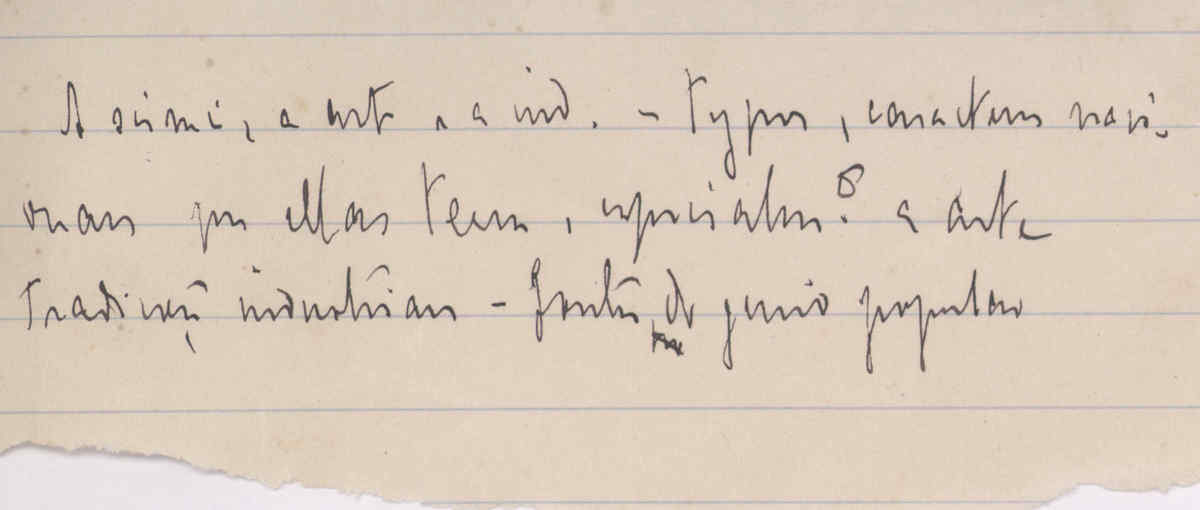 A sciencia, a arte e a ind. – typos, caracteres naci-
onaes que ellas teem, especialm.e a arte
Tradições industriaes – Fontes do genio popular